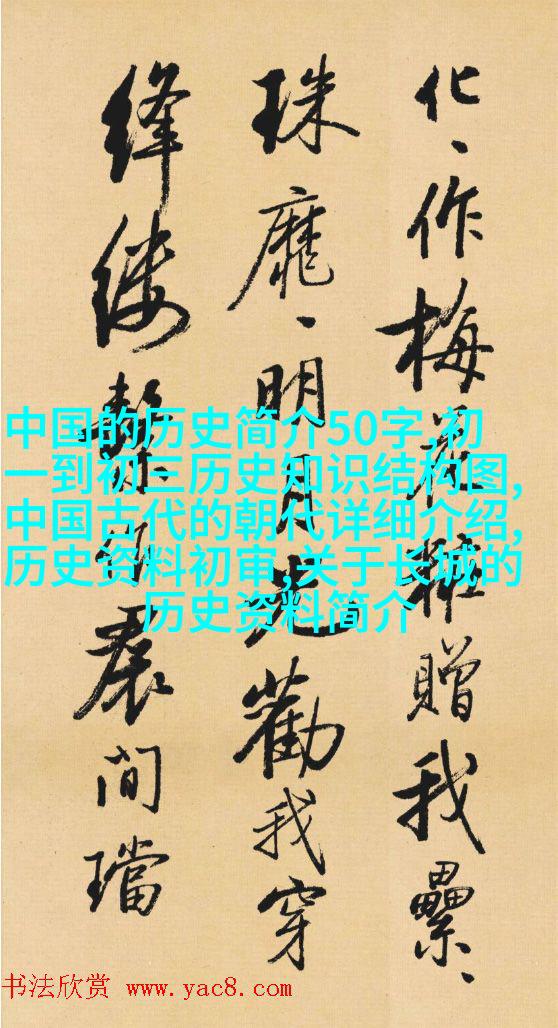 化、作梅花粧贈我纍、
珠靡、明月光勸我穿
絳縷繫作裠間璫
中国的历史简介50字,初
一到初三历史知识结构图,
中国古代的朝代详细介绍,
历史资料初审,关于长城的
历史资料简介
书法欣赏 www.yac8.com